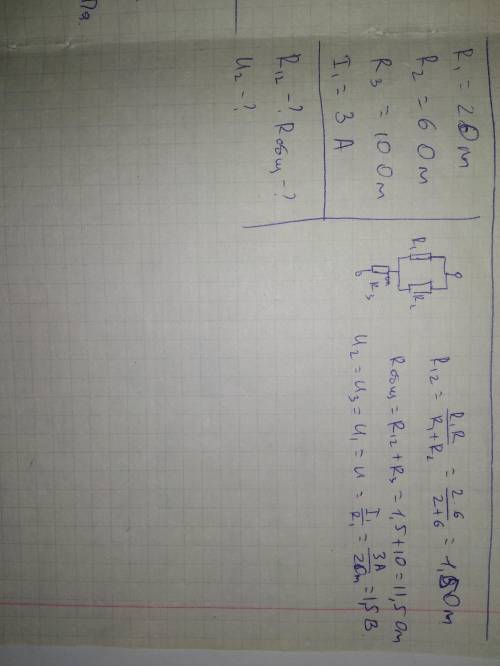 Па.
R₁ = 2Ом
R₂ = 6Ом
R₃ = 10Ом
I₁ = 3 А
R₁₂ -? Rобщ -?
U₂ -?
R₁
R₂
R₃
R₁₂ = R₁R / R₁+R₂ = 2·6 / 2+6 = 1,5Ом
Rобщ = R₁₂ + R₃ = 1,5 + 10 = 11,5 Ом
U₂ = U₃ = U₁ = U = I₁ / R₁ = 3А / 2Ом = 1,5 В